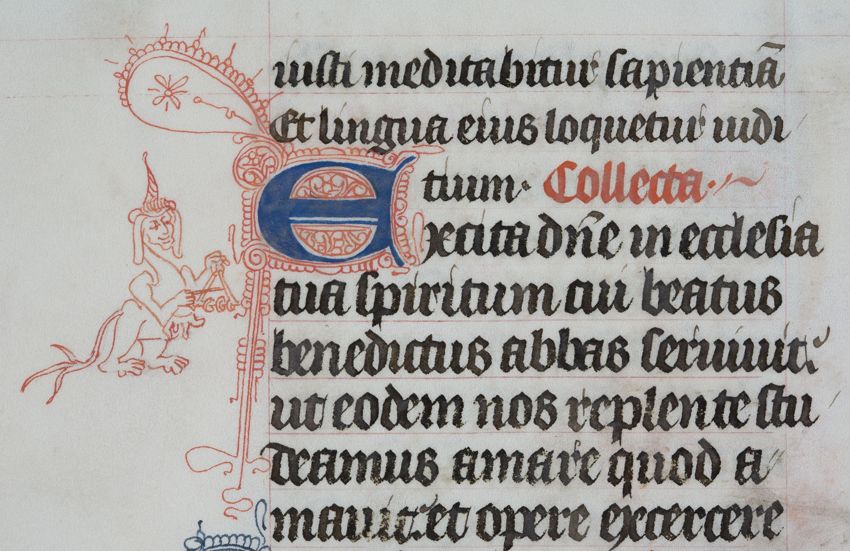 iusti meditabitur sapientiā
Et lingua eius loquetur iudi
tium. Collecta.
Excita dn̄e in ecclesia
tua spiritum cui beatus
benedictus abbas seruiuit.
ut eodem nos replente stu
deamus amare quod a
mauit. et opere excercere